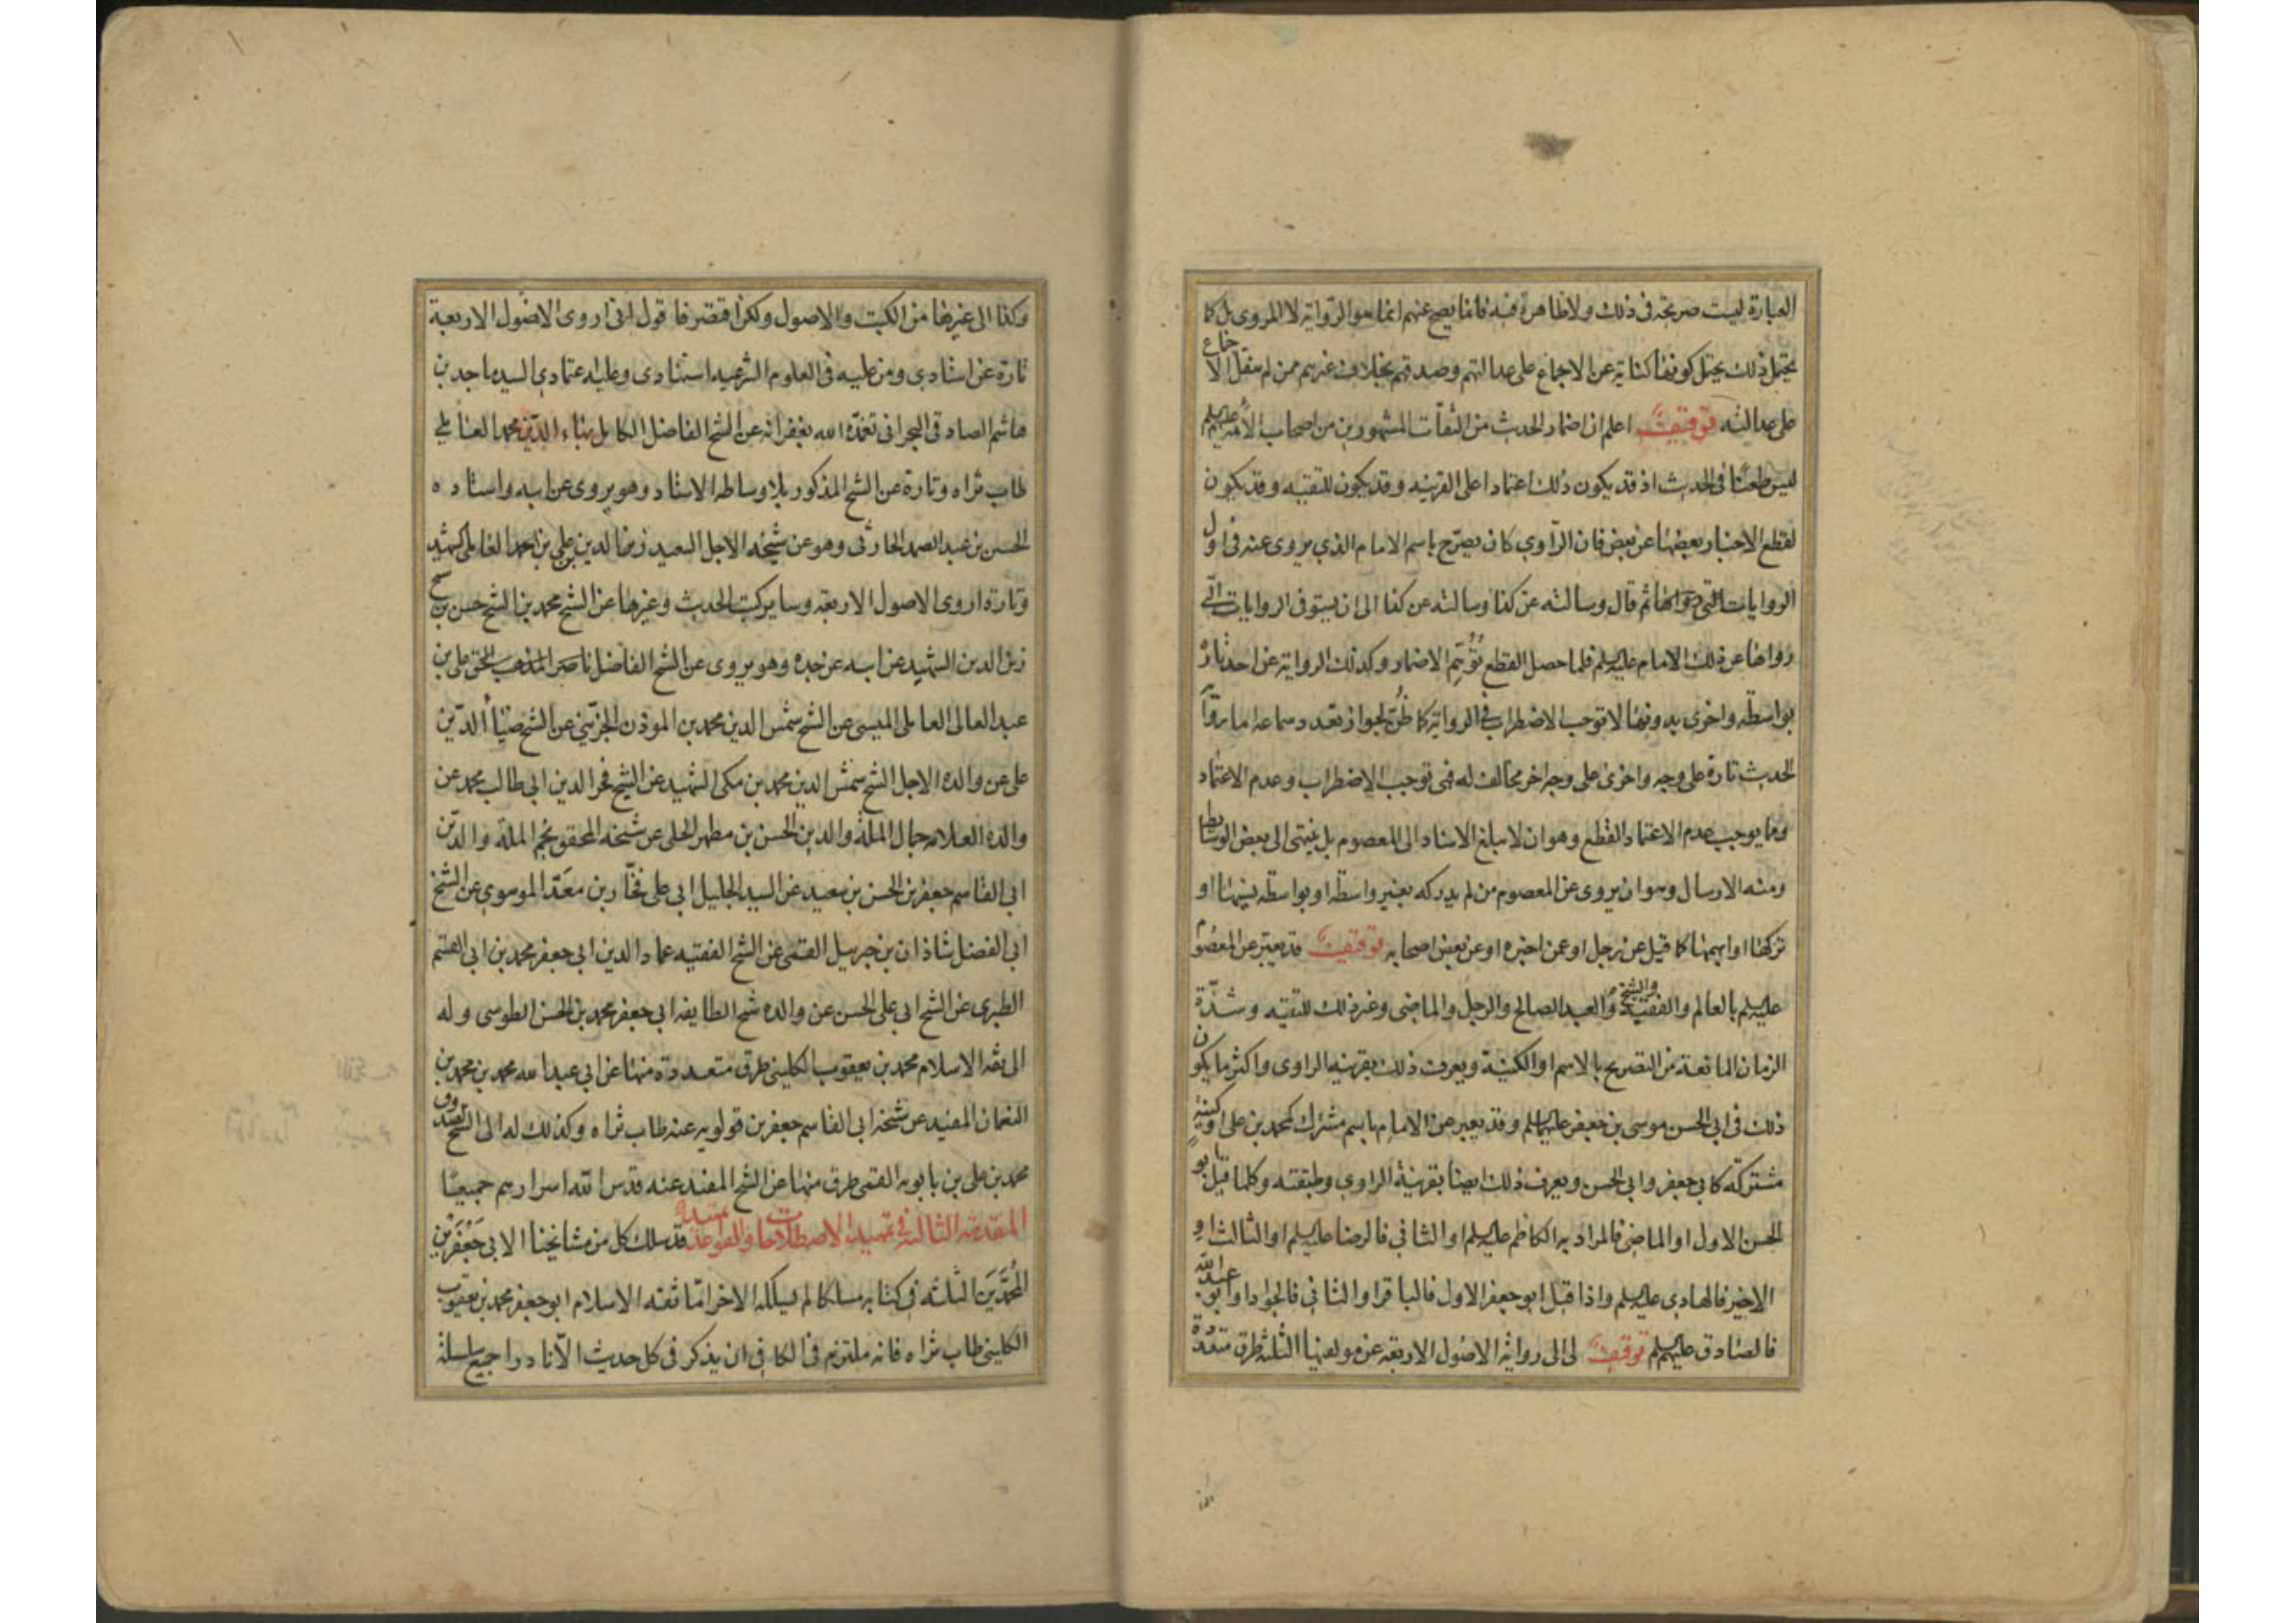 العبارة ليست صريحة في ذلك ولا ظاهرة فيه فان ما يصح عنهم انما هو الرواية لا المروى بل كما
يحتمل ذلك يحتمل كونها كناية عن الاجماع على عدالتهم وصدقهم بخلاف غيرهم ممن لم ينقل الاجماع
على عدالته توقيف اعلم ان اضمار الحديث من الثقات المشهورين من اصحاب الائمة عليهم السلم
ليس طعنًا في الحديث اذ قد يكون ذلك اعتمادا على القرينه وقد يكون للتقيه وقد يكون
لقطع الاخبار بعضها عن بعض فان الراوي كان يصرّح باسم الامام الذي يروى عنه في اول
الروايات التي رواها ثم قال وسالته عن كذا وسالته عن كذا الى ان يستوفى الروايات التي
رواها عن ذلك الامام عليه السلم فلما حصل القطع تُوُهِّم الاضمار وكذلك الرواية عن احد تارة
بواسطة واخرى بدونها لا توجب الاضطراب في الرواية كما ظُنّ لجواز تعدد سماعه اما رواية
الحديث تارة على وجه واخرى على وجه اخر مخالف له فهى توجب الاضطراب وعدم الاعتماد
ومما يوجب عدم الاعتماد القطع وهو ان لا يبلغ الاسناد الى المعصوم بل ينتهى الى بعض الوسايط
ومنه الارسال وهو ان يروى عن المعصوم من لم يدركه بغير واسطة او بواسطة نسيها او
تركها او ابهمها كما قيل عن رجل او عمن اخبره او عن بعض اصحابه توقيف قد يعبّر عن المعصوم
عليه السلم بالعالم والفقيه والشيخ والعبد الصالح والرجل والماضى وغير ذلك للتقيه وشدّة
الزمان المانعة من التصريح بالاسم او الكنية ويعرف ذلك بقرينه الراوى واكثر ما يكون
ذلك في ابي الحسن موسى بن جعفر عليهما السلم وقد يعبر عن الامام باسم مشترك كمحمد بن على او كنية
مشتركة كابي جعفر وابي الحسن ويعرف ذلك ايضا بقرينة الراوي وطبقته وكلما قيل ابو
الحسن الاول او الماضى فالمراد به الكاظم عليه السلم او الثاني فالرضا عليه السلم او الثالث او
الاخير فالهادي عليه السلم واذا قيل ابو جعفر الاول فالباقر او الثاني فالجواد او ابو عبد الله
فالصادق عليهم السلم توقيف لى الى رواية الاصول الاربعه عن مولفيها الثلثة طرق متعددة
وكذا الى غيرها من الكتب والاصول ولكن اقتصر فاقول انى اروى الاصول الاربعة
تارة عن استادي ومن عليه في العلوم الشرعيه استنادى وعليه اعتمادي السيد ماجد بن
هاشم الصادقى البحرانى تغمّده الله بغفرانه عن الشيخ الفاضل الكامل بهاء الدّين محمد العاملي
طاب ثراه وتارة عن الشيخ المذكور بلا وساطه الاستاد وهو يروى عن ابيه واستاده
الحسين بن عبد الصمد الحارثى وهو عن شيخه الاجل السعيد زين الدين بن على بن احمد العاملى الشهيد
وتارة اروى الاصول الاربعه وساير كتب الحديث وغيرها عن الشيخ محمد بن الشيخ حسن بن الشيخ
زين الدين الشهيد عن ابيه عن جده وهو يروى عن الشيخ الفاضل ناصر المذهب الحق على بن
عبد العالى العاملى الميسى عن الشيخ شمس الدين محمد بن الموذن الجزّينى عن الشيخ ضياء الدّين
على عن والده الاجل الشيخ شمس الدين محمد بن مكى الشهيد عن الشيخ فخر الدين ابي طالب محمد عن
والده العلامه جمال الملة والدين الحسن بن مطهر الحلى عن شيخه المحقق نجم الملة والدّين
ابي القاسم جعفر بن الحسن بن سعيد عن السيد الجليل ابي على فخّار بن معدّ الموسوي عن الشيخ
ابي الفضل شاذان بن جبرييل القمى عن الشيخ الفقيه عماد الدين ابى جعفر محمد بن ابى القسم
الطبرى عن الشيخ ابى على الحسن عن والده شيخ الطايفه ابي جعفر محمد بن الحسن الطوسى وله
الى ثقه الاسلام محمد بن يعقوب الكلينى طرق متعددة منها عن ابي عبد الله محمد بن محمد بن
النعمان المفيد عن شيخه ابى القاسم جعفر بن قولويه عنه طاب ثراه وكذلك له الى الشيخ الصدوق
محمد بن على بن بابويه القمى طرق منها عن الشيخ المفيد عنه قدس الله اسرارهم جميعًا
المقدمة الثالثه في تمهيد الاصطلاحات والقواعد قد سلك كل من مشايخنا الابي جَعْفَرِيْن
المُحَمَّدِيْنَ الثلثه في كتابه مسلكا لم يسلكه الاخر امّا ثقه الاسلام ابو جعفر محمد بن يعقوب
الكلينى طاب ثراه فانه ملتزم في الكافي ان يذكر في كل حديث الّا نادرا جميع سلسلة